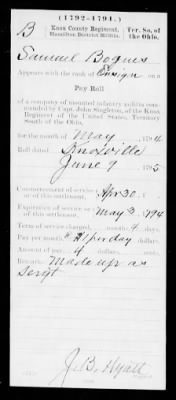 (1792-1794.)
B
Knox County Regiment,
Hamilton District Militia.
Ter. So. of
the Ohio.
Samuel Bogus
Appears with the rank of Ensign on a
Pay Roll
of a company of mounted infantry militia commanded by Capt. John Singleton, of the Knox
Regiment of the United States, Territory
South of the Ohio,
for the month of May, 1794
Roll dated Knoxville
June 9, 1795
Commencement of service or of this settlement, Apr 30, 1
Expiration of service or of this settlement, May 3, 1794
Term of service charged, months 4 days
Pay per month, $1 per day dollars.
Amount of pay, 4 dollars,
Remarks: Made up as
Sergt
J. B. Hyatt